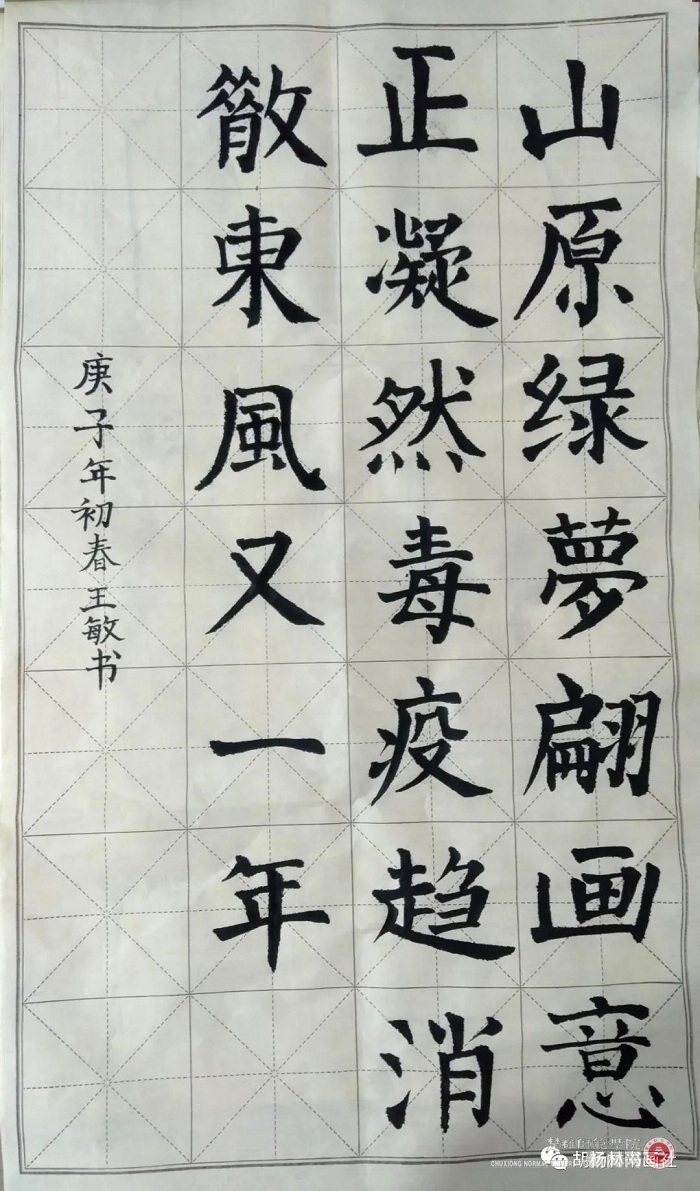 山原绿夢翩画意
正凝然毒疫趋消
散東風又一年
庚子年初春王敏书
胡杨林书画社